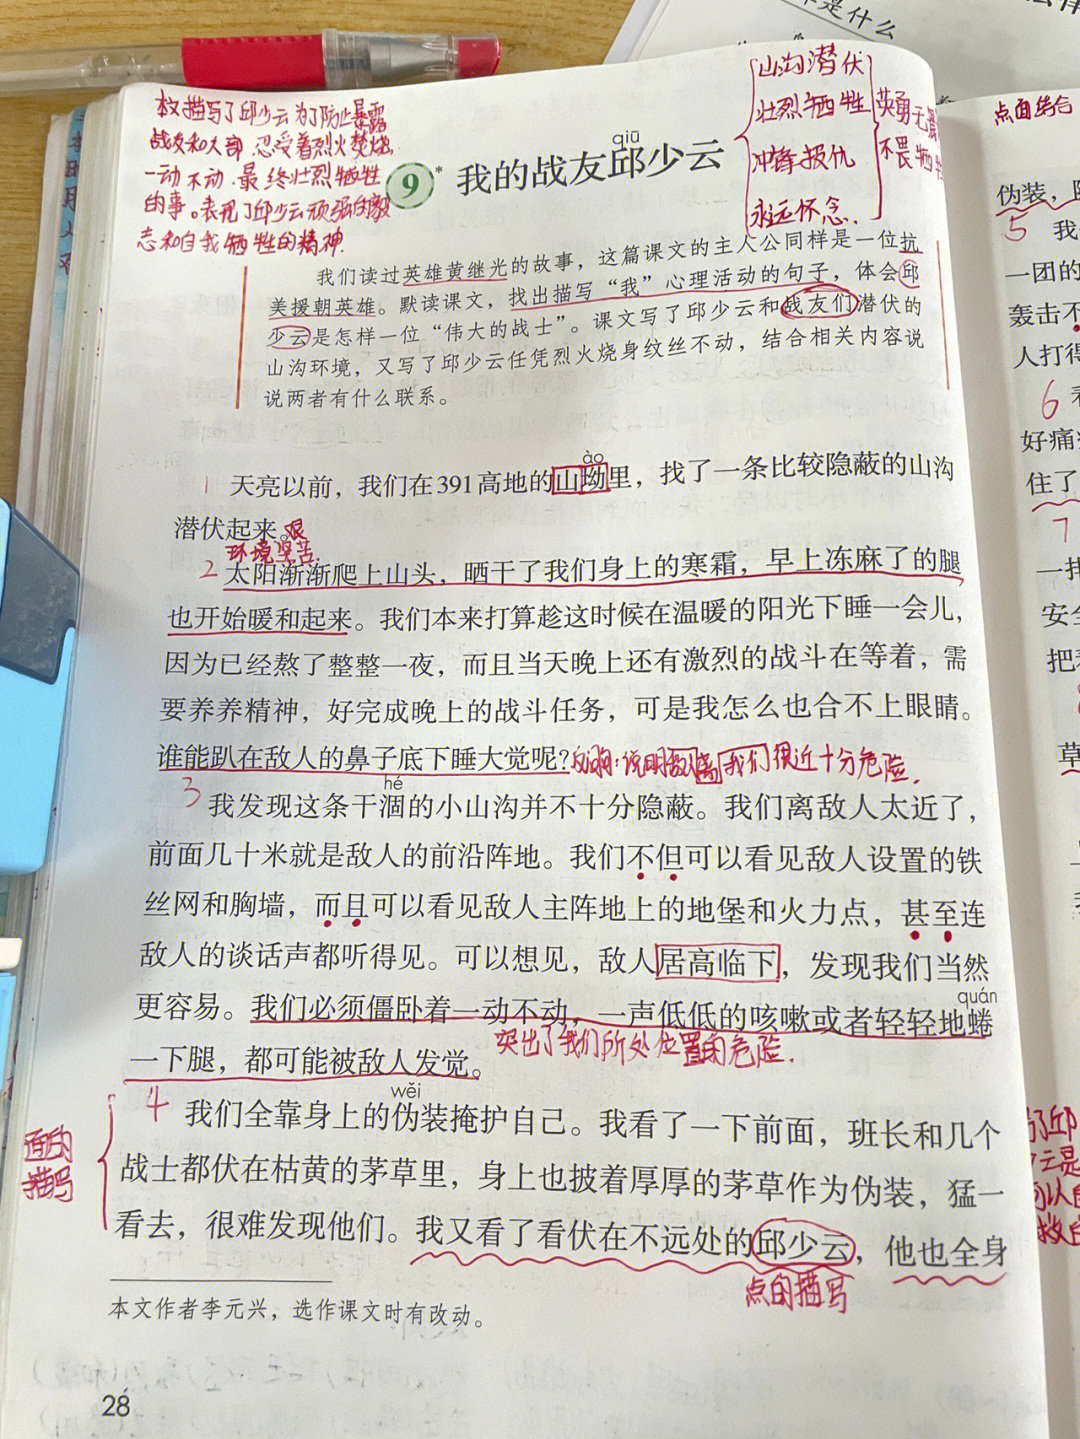 是什么
本文描写了邱少云为了防止暴露
战友和大部 忍受着烈火焚烧,
一动不动.最终壮烈牺牲
的事。表现了邱少云顽强的毅
志和自我牺牲的精神.
qiū
9* 我的战友邱少云
山沟潜伏
壮烈牺牲
冲锋报仇
永远怀念.
英勇无
不畏牺牲
我们读过英雄黄继光的故事，这篇课文的主人公同样是一位抗
美援朝英雄。默读课文，找出描写“我”心理活动的句子，体会邱
少云是怎样一位“伟大的战士”。课文写了邱少云和战友们潜伏的
山沟环境，又写了邱少云任凭烈火烧身纹丝不动，结合相关内容说
说两者有什么联系。
ào
1 天亮以前，我们在391高地的山坳里，找了一条比较隐蔽的山沟
潜伏起来。
环境艰苦.
2 太阳渐渐爬上山头，晒干了我们身上的寒霜，早上冻麻了的腿
也开始暖和起来。我们本来打算趁这时候在温暖的阳光下睡一会儿，
因为已经熬了整整一夜，而且当天晚上还有激烈的战斗在等着，需
要养养精神，好完成晚上的战斗任务，可是我怎么也合不上眼睛。
谁能趴在敌人的鼻子底下睡大觉呢？反问:说明敌人离我们很近十分危险.
hé
3 我发现这条干涸的小山沟并不十分隐蔽。我们离敌人太近了，
前面几十米就是敌人的前沿阵地。我们不但可以看见敌人设置的铁
丝网和胸墙，而且可以看见敌人主阵地上的地堡和火力点，甚至连
敌人的谈话声都听得见。可以想见，敌人居高临下，发现我们当然
更容易。我们必须僵卧着一动不动，一声低低的咳嗽或者轻轻地蜷
quán
一下腿，都可能被敌人发觉。
突出了我们所处位置的危险.
wěi
4 我们全靠身上的伪装掩护自己。我看了一下前面，班长和几个
战士都伏在枯黄的茅草里，身上也披着厚厚的茅草作为伪装，猛一
看去，很难发现他们。我又看了看伏在不远处的邱少云，他也全身
面的
描写
点的描写
本文作者李元兴，选作课文时有改动。
28
点面结合
伪装，
5 我
一团的
轰击不
人打得
6
好痛
住了
7
一排
安全
把
草
了邱
云是